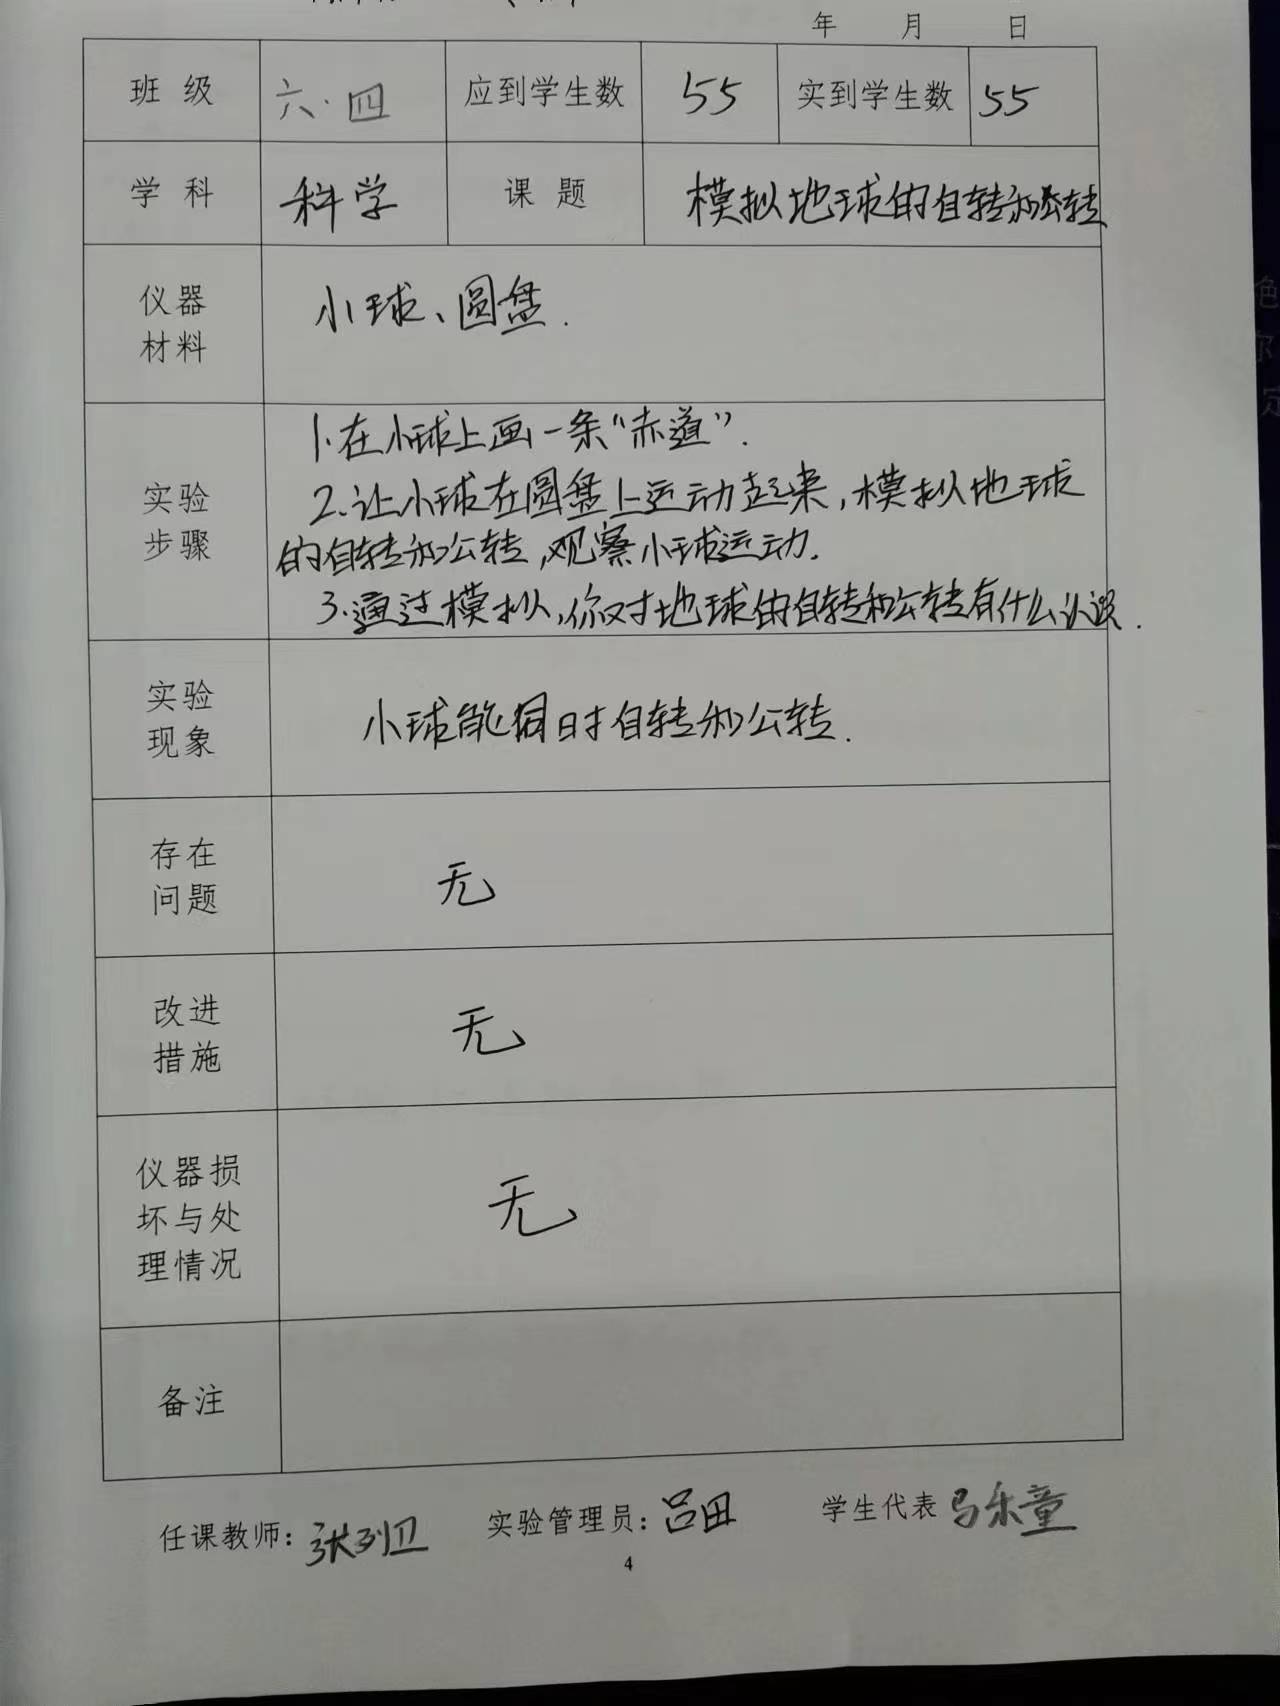 年 月 日
班 级 六·四 应到学生数 55 实到学生数 55
学 科 科学 课 题 模拟地球的自转和公转
仪器
材料
小球、圆盘.
实验
步骤
1.在小球上画一条“赤道”.
2.让小球在圆盘上运动起来,模拟地球
的自转和公转,观察小球运动.
3.通过模拟,你对地球的自转和公转有什么认识.
实验
现象
小球能同时自转和公转.
存在
问题
无
改进
措施
无
仪器损
坏与处
理情况
无
备注
任课教师: 张列卫 实验管理员: 吕田 学生代表 马乐童
4